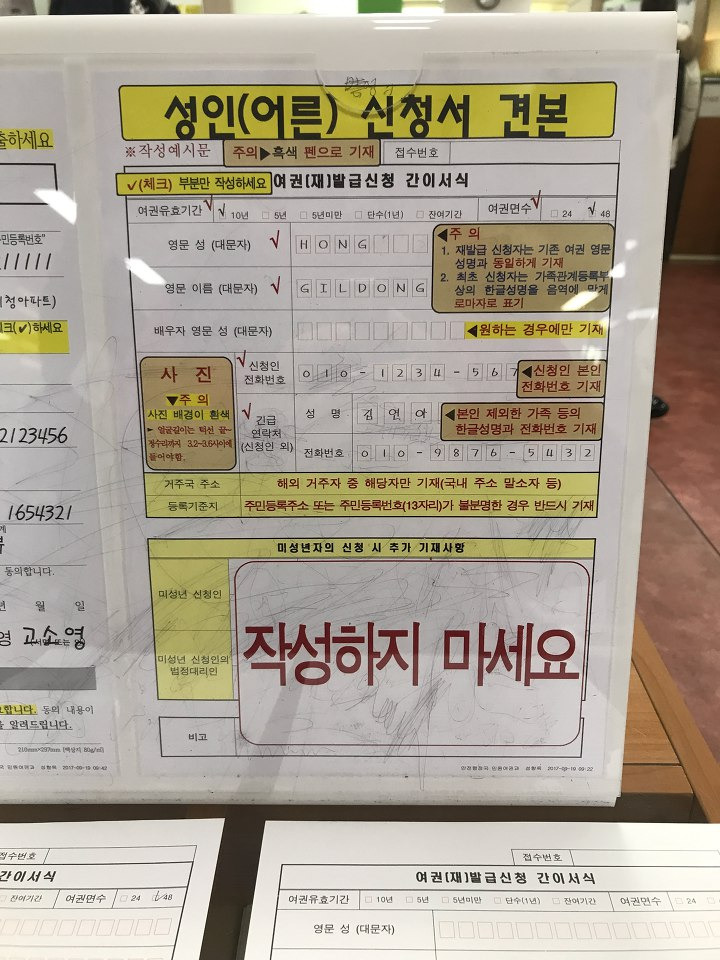 출하세요
민등록번호"
11111
청아파트)
체크(✔)하세요
2123456
1654321
동의합니다.
년 월 일
영 고소영
합니다. 동의 내용이
알려드립니다.
210mm×297mm [백상지 80g/㎡]
민원여권과 성형록 2017-09-19 09:42
성인(어른) 신청서 견본
※작성예시문
주의▶흑색 펜으로 기재
접수번호
✔(체크) 부분만 작성하세요
여권(재)발급신청 간이서식
여권유효기간 √ √ 10년 □ 5년 □ 5년미만 □ 단수(1년) □ 잔여기간 여권면수 √ □ 24 √ 48
영문 성 (대문자) √ HONG
영문 이름 (대문자) √ GILDONG
◀주 의
1. 재발급 신청자는 기존 여권 영문
성명과 동일하게 기재
2. 최초 신청자는 가족관계등록부
상의 한글성명을 음역에 맞게
로마자로 표기
배우자 영문 성 (대문자)
◀원하는 경우에만 기재
사 진
▼주 의
사진 배경이 흰색
► 얼굴길이는 턱선 끝~
정수리까지 3.2~3.6사이에
들어야함.
√ 신청인
전화번호
010-1234-567
◀신청인 본인
전화번호 기재
√ 긴급
연락처
(신청인 외)
성 명 김연아
◀본인 제외한 가족 등의
한글성명과 전화번호 기재
전화번호 010-9876-5432
거주국 주소 해외 거주자 중 해당자만 기재(국내 주소 말소자 등)
등록기준지 주민등록주소 또는 주민등록번호(13자리)가 불분명한 경우 반드시 기재
미성년자의 신청 시 추가 기재사항
미성년 신청인
작성하지 마세요
미성년 신청인의
법정대리인
비고
민원여권과 성형록 2017-09-19 09:22
접수번호
간이서식
□ 잔여기간 여권면수 □ 24 √48
접수번호
여권(재)발급신청 간이서식
여권유효기간 □ 10년 □ 5년 □ 5년미만 □ 단수(1년) □ 잔여기간 여권면수 □ 24
영문 성 (대문자)